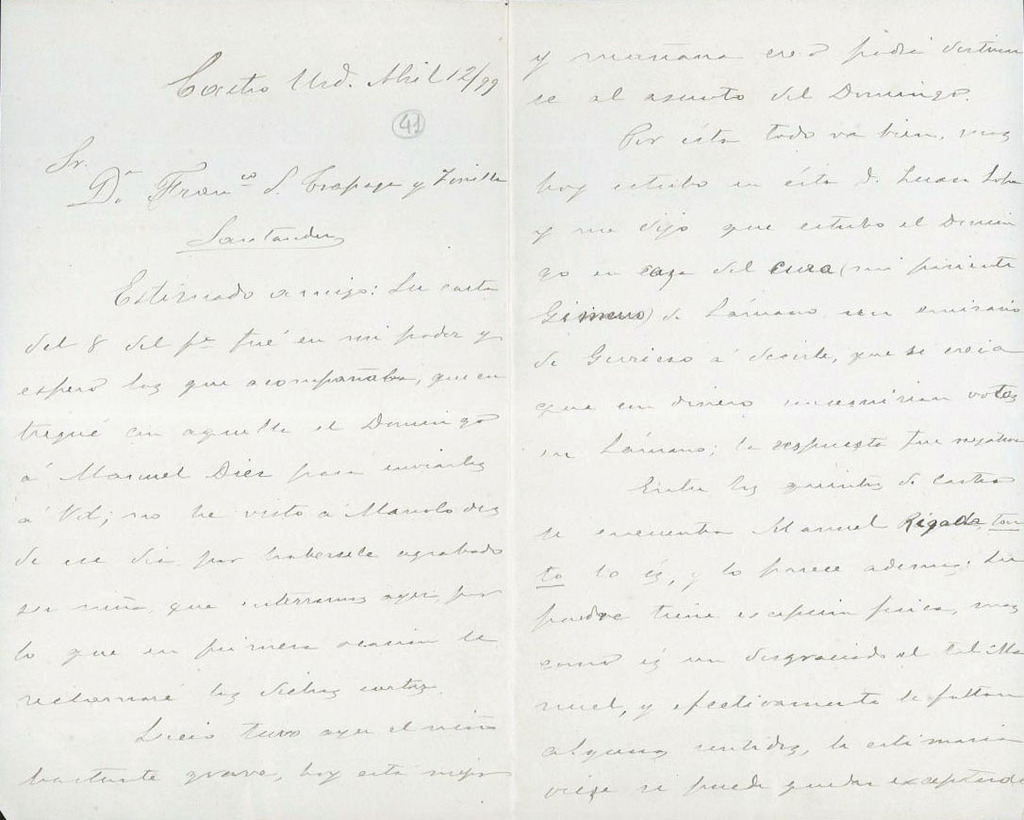 Castro Urd. Abril 12/99
41
Sr.
Dn. Franco S. Trapaga y Zorrilla
Santander
Estimado amigo: Su carta
del 8 del pte fué en mi poder y
espero las que acompañaba, que en
tregué con aquella el Domingo
á Manuel Diez para enviarlas
á Vd; no he visto á Manolo des
de ese dia por habersele agrabado
su niña, que enterramos ayer, por
lo que en primera ocasion le
reclamaré las dichas cartas.
Lucio tuvo ayer el niño
bastante grave, hoy está mejor
y mañana creo podrá destinar
se al asunto del Domingo.
Por ésta todo va bien, mas
hoy estubo en ésta D. Luc Loba
y me dijo que estubo el Domin
go en casa del cura (mi pariente
Gimeno) de Sámano, un emisario
de Guriezo á decirle, que se creia
que con dinero conseguirian votos
en Sámano; la respuesta fue negativa
Entre los quintos de Castro
se encuentra Manuel Rigada, ton
to lo és, y lo parece ademas; su
padre tiene excepcion fisica, mas
como és un desgraciado el tal Ma
nuel, y efectivamente le faltan
algunos sentidos, le estimaria
viese si puede quedar exceptuado